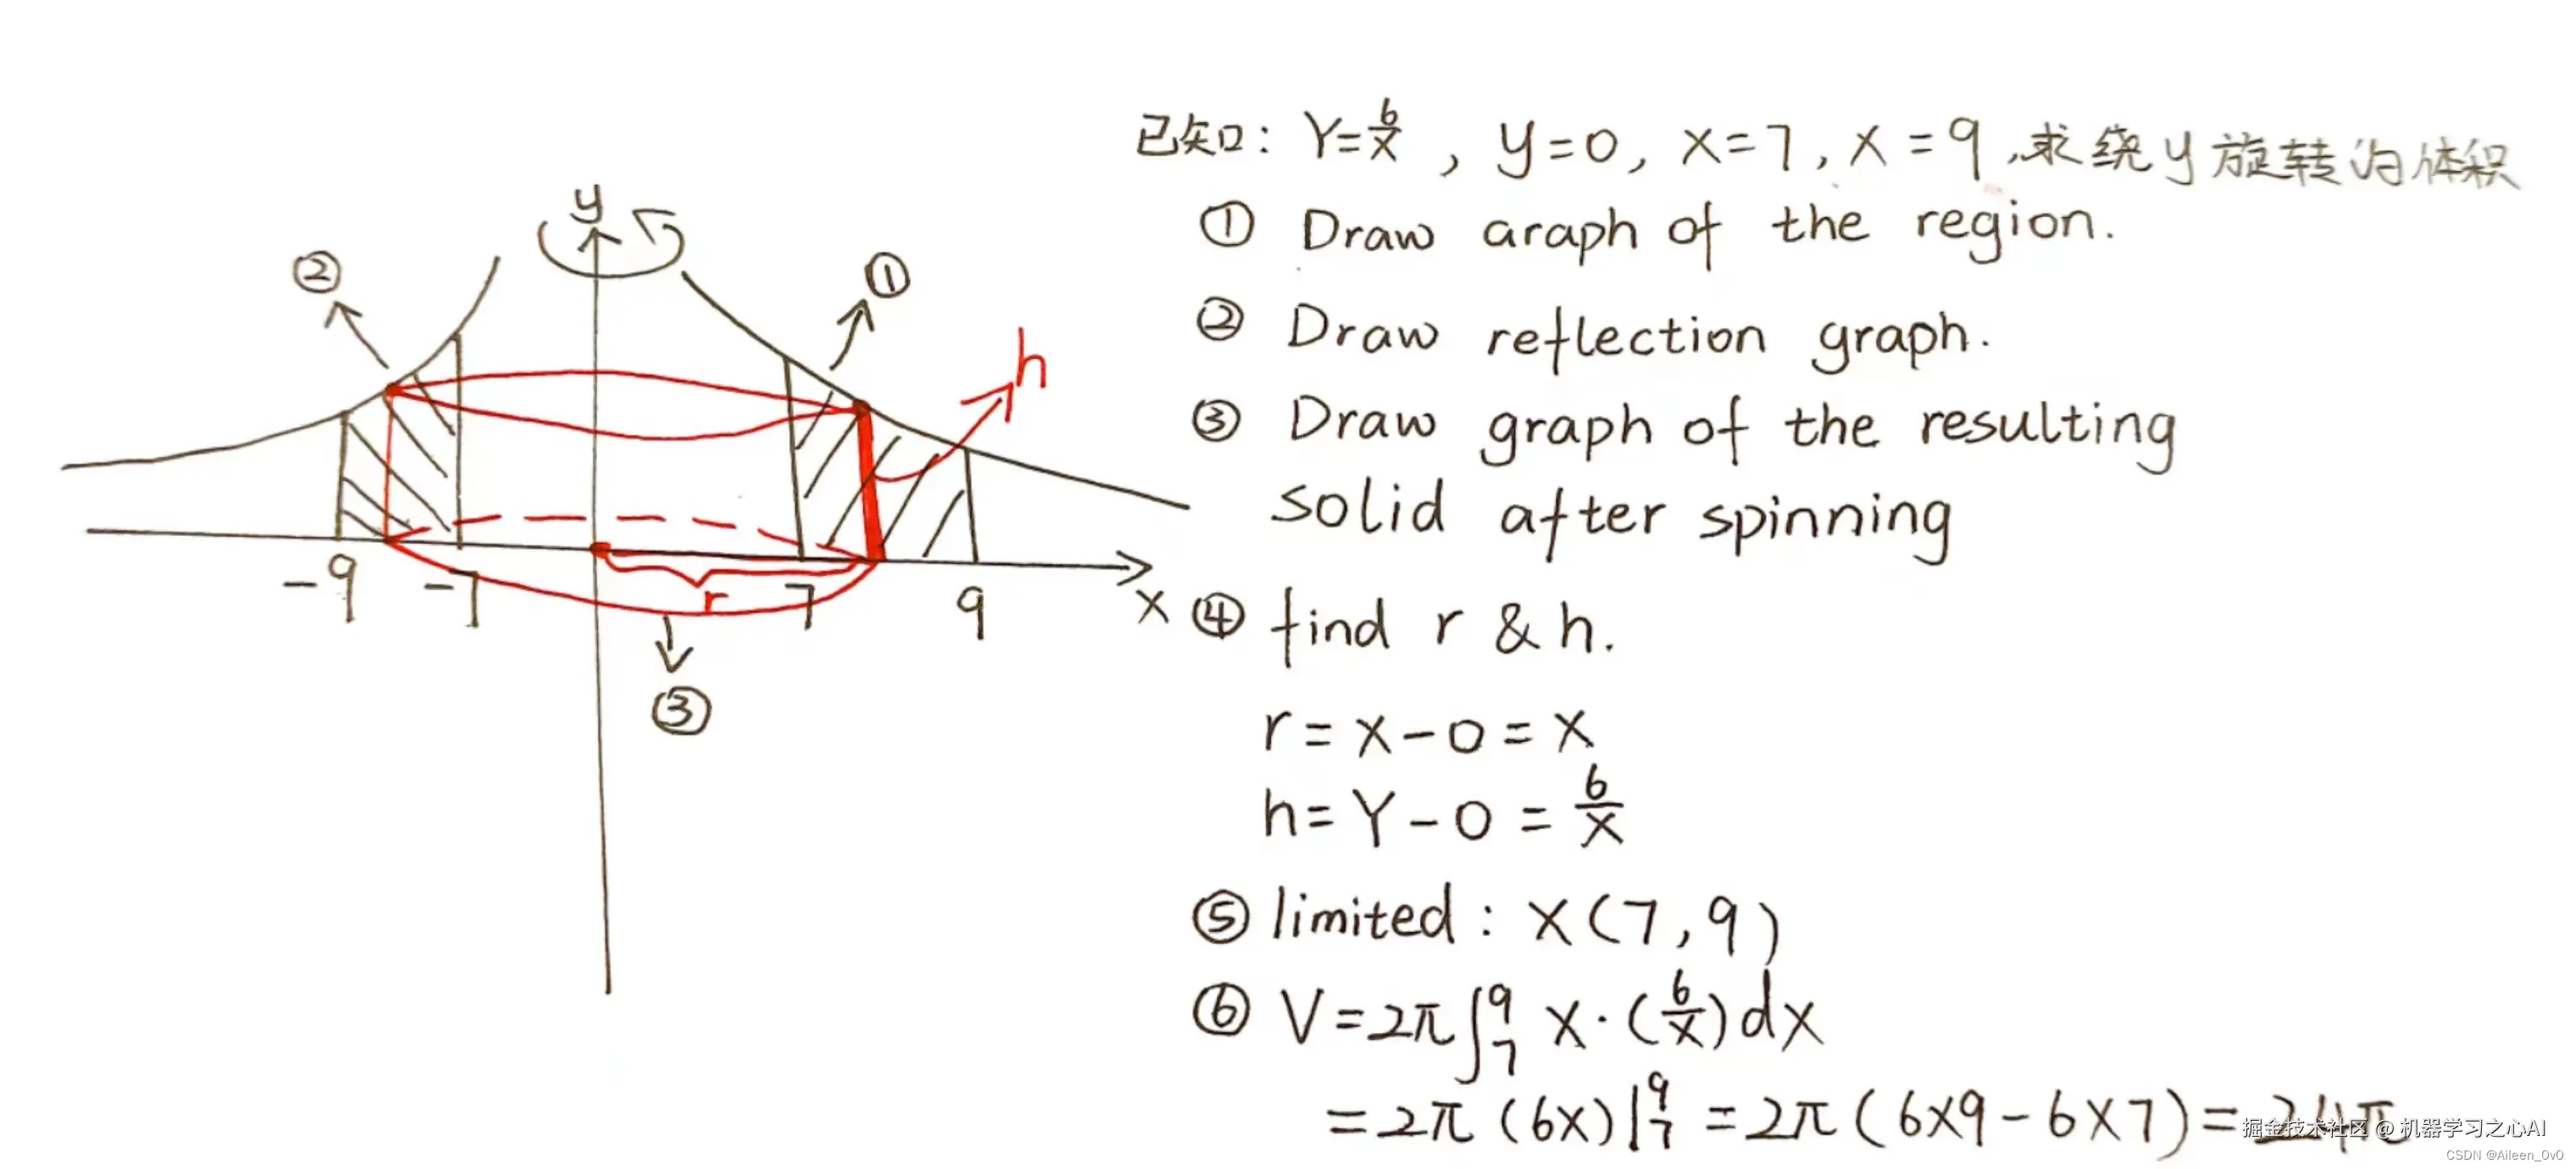 已知: Y=6/x , y=0, x=7, x=9 ,求绕y旋转的体积
① Draw araph of the region.
② Draw reflection graph.
③ Draw graph of the resulting
solid after spinning
④ find r & h.
r = x-0 = x
h = Y-0 = 6/x
⑤ limited: x(7,9)
⑥ V=2π∫₇⁹ x·(6/x)dx
=2π(6x)|₇⁹ =2π(6x9-6x7)=24π
y
②
①
h
-9
-7
r
7
9
x
③
掘金技术社区 @ 机器学习之心AI
CSDN @Aileen_0v0